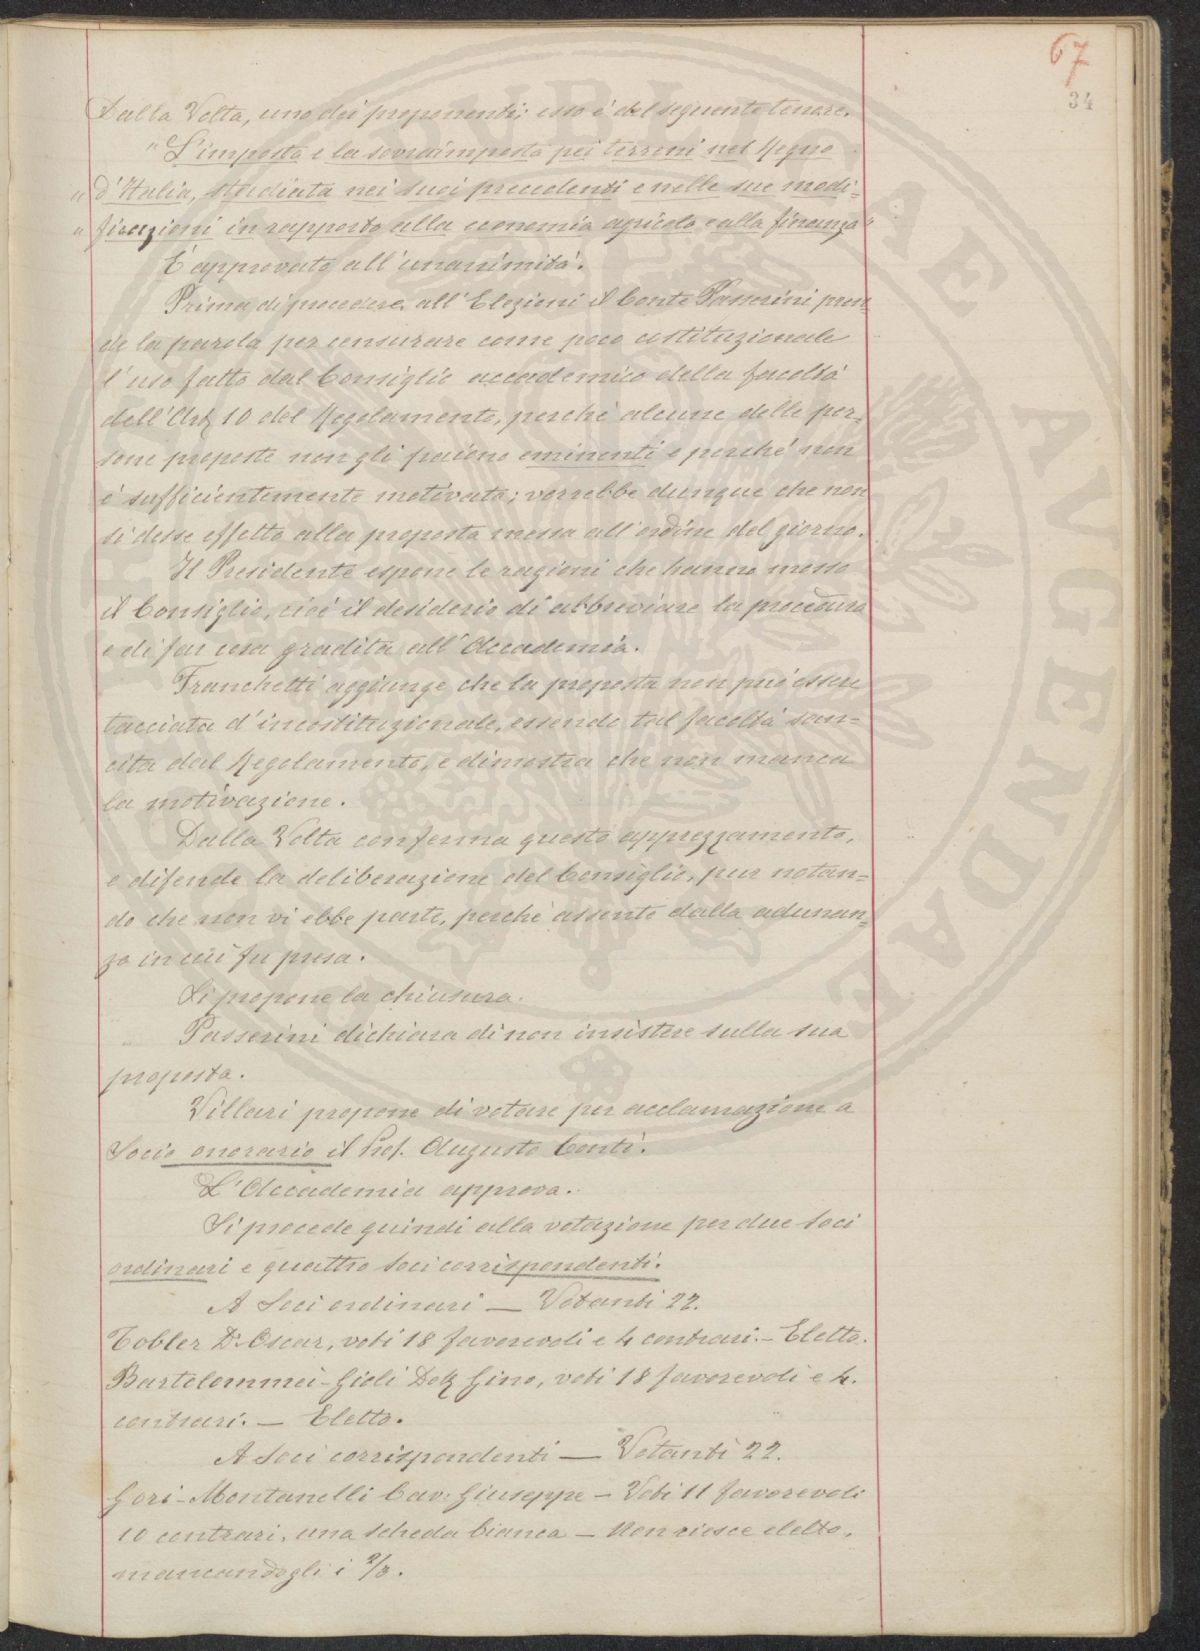 67
34
Dalla Volta, uno dei proponenti; esso è del seguente tenore.
"L'imposta e la sovraimposta pei terreni nel Regno
" d'Italia, studiata nei suoi precedenti e nelle sue modi-
" ficazioni in rapporto alla economia agricola e alla finanza"
È approvato all'unanimità.
Prima di procedere all'Elezioni il Conte Passerini pren-
de la parola per censurare come poco costituzionale
l'uso fatto dal Consiglio accademico della facoltà
dell'Art. 10 del Regolamento, perchè alcune delle per-
sone proposte non gli paiono eminenti e perchè non
è sufficientemente motivata; vorrebbe dunque che non
si desse effetto alla proposta messa all'ordine del giorno.
Il Presidente espone le ragioni che hanno mosso
il Consiglio, cioè il desiderio di abbreviare la procedura
e di far cosa gradita all'Accademia.
Franchetti aggiunge che la proposta non può essere
tacciata d'incostituzionale, essendo tal facoltà san-
cita dal Regolamento, e dimostra che non manca
la motivazione.
Dalla Volta conferma questo apprezzamento,
e difende la deliberazione del Consiglio, pur notan-
do che non vi ebbe parte, perchè assente dalla adunan-
za in cui fu presa.
Si propone la chiusura.
Passerini dichiara di non insistere sulla sua
proposta.
Villari propone di votare per acclamazione a
Socio onorario il Prof. Augusto Conti.
L'Accademia approva.
Si procede quindi alla votazione per due soci
ordinari e quattro soci corrispondenti.
A Soci ordinari — Votanti 22.
Tobler Dr Oscar, voti 18 favorevoli e 4 contrari. — Eletto.
Bartolommei-Gioli Dott. Gino, voti 18 favorevoli e 4.
contrari. — Eletto.
A Soci corrispondenti — Votanti 22.
Gori-Montanelli Cav. Giuseppe — Voti 11 favorevoli
10 contrari, una scheda bianca — Non riesce eletto,
mancandogli i 2/3.